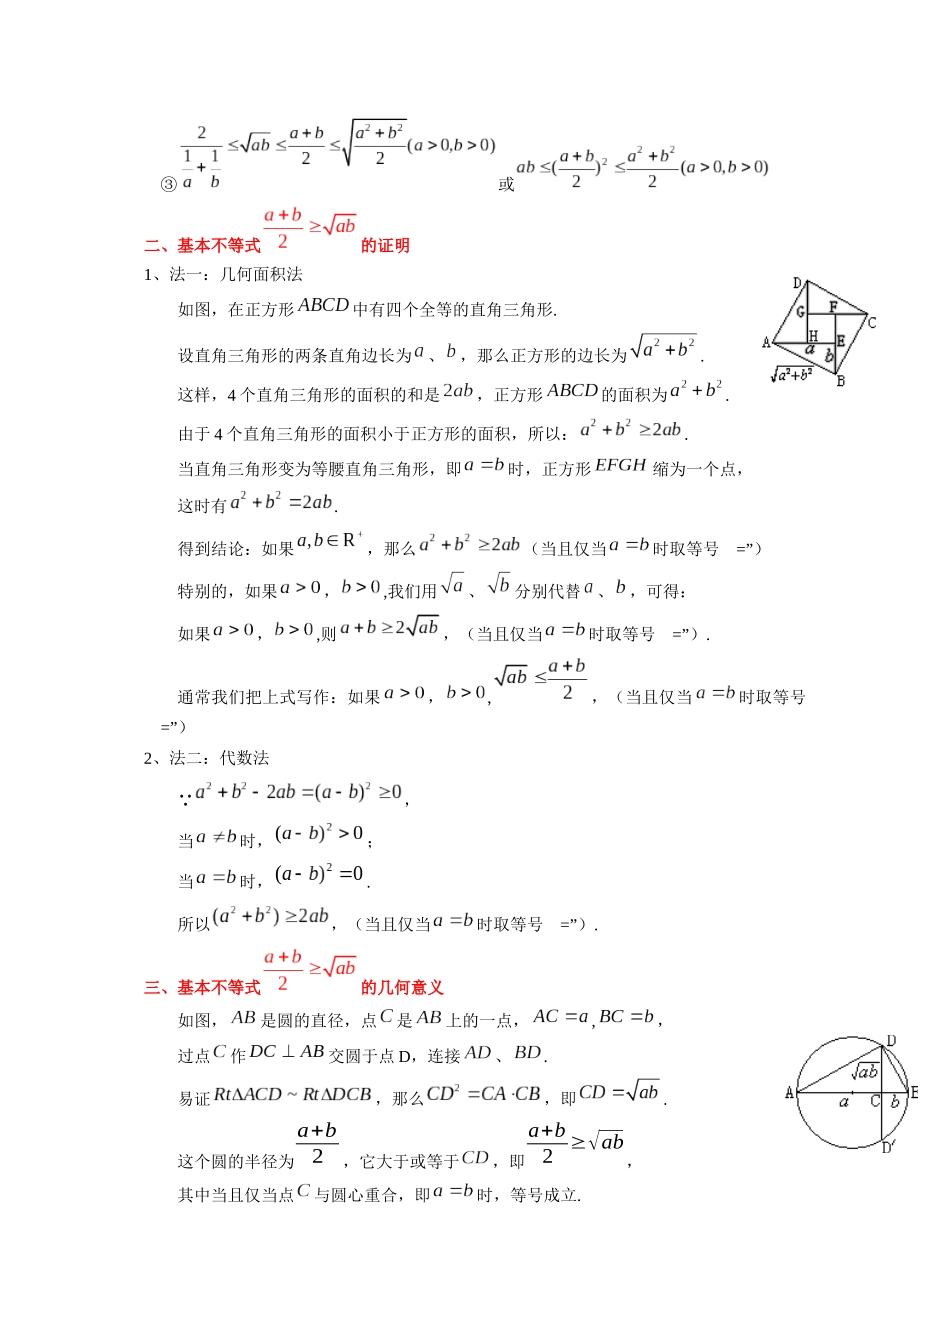 ③ \frac{2}{\frac{1}{a}+\frac{1}{b}}≤\sqrt{ab}≤\frac{a+b}{2}≤\sqrt{\frac{a^2+b^2}{2}}(a>0,b>0) 或 ab≤(\frac{a+b}{2})^2≤\frac{a^2+b^2}{2}(a>0,b>0)
二、基本不等式 \frac{a+b}{2}≥\sqrt{ab} 的证明
1、法一：几何面积法
如图，在正方形 ABCD 中有四个全等的直角三角形.
设直角三角形的两条直角边长为 a 、 b ，那么正方形的边长为 \sqrt{a^2+b^2} .
这样，4 个直角三角形的面积的和是 2ab ，正方形 ABCD 的面积为 a^2+b^2 .
由于 4 个直角三角形的面积小于正方形的面积，所以： a^2+b^2≥2ab .
当直角三角形变为等腰直角三角形，即 a=b 时，正方形 EFGH 缩为一个点，
这时有 a^2+b^2=2ab .
得到结论：如果 a,b∈R^+ ，那么 a^2+b^2≥2ab （当且仅当 a=b 时取等号 =”）
特别的，如果 a>0 ， b>0 ,我们用 \sqrt{a} 、 \sqrt{b} 分别代替 a 、 b ，可得：
如果 a>0 ， b>0 ,则 a+b≥2\sqrt{ab} ，（当且仅当 a=b 时取等号 =”）.
通常我们把上式写作：如果 a>0 ， b>0 , \sqrt{ab}≤\frac{a+b}{2} ，（当且仅当 a=b 时取等号
=”）
D
G
F
C
A
H
E
a
b
\sqrt{a^2+b^2}
B
2、法二：代数法
∵ a^2+b^2-2ab=(a-b)^2≥0 ，
当 a≠b 时， (a-b)^2>0 ；
当 a=b 时， (a-b)^2=0 .
所以 (a^2+b^2)≥2ab ，（当且仅当 a=b 时取等号 =”）.
三、基本不等式 \frac{a+b}{2}≥\sqrt{ab} 的几何意义
如图， AB 是圆的直径，点 C 是 AB 上的一点， AC=a , BC=b ，
过点 C 作 DC⊥AB 交圆于点 D，连接 AD 、 BD .
易证 RtΔACD~RtΔDCB ，那么 CD^2=CA·CB ，即 CD=\sqrt{ab} .
这个圆的半径为 \frac{a+b}{2} ，它大于或等于 CD ，即 \frac{a+b}{2}≥\sqrt{ab} ，
其中当且仅当点 C 与圆心重合，即 a=b 时，等号成立.
D
\sqrt{ab}
A
a
C
b
B
D'